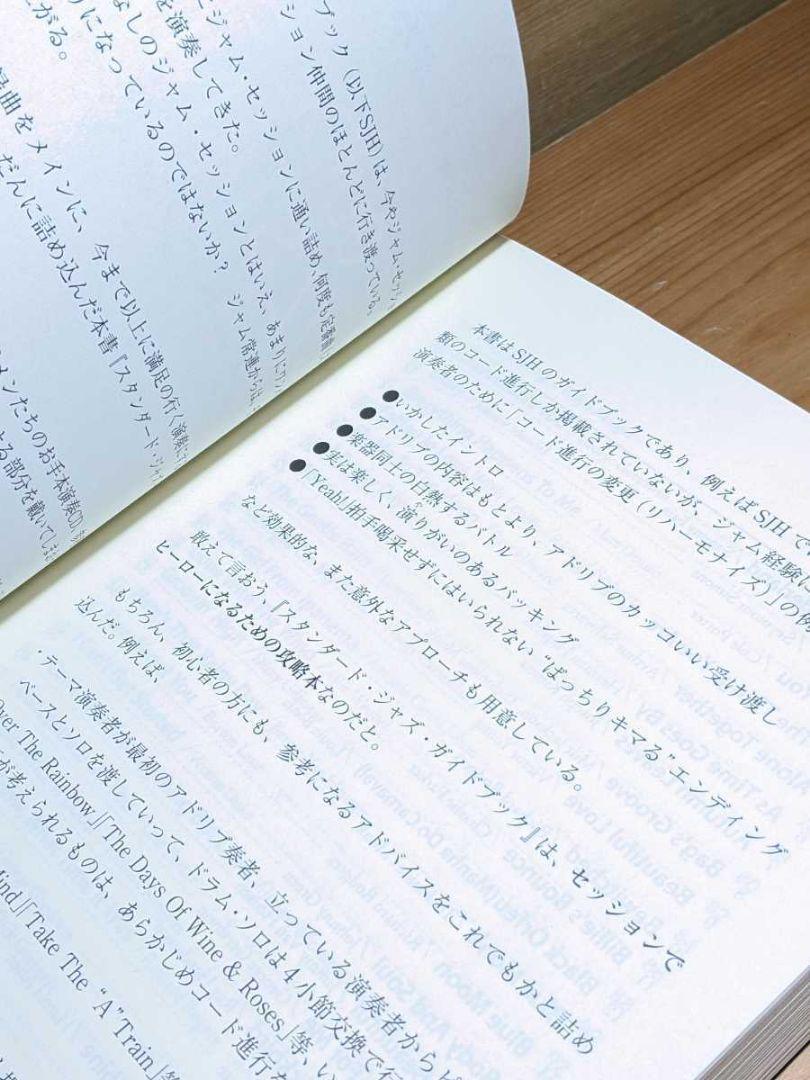 ブック（以下SJH）は、今やジャム・セッシ
ション仲間のほとんどに行き渡っている。
ジャム・セッションに通い詰め、何度も定番曲
を演奏してきた。
なしのジャム・セッションとはいえ、あまりに
になっているのではないか？　ジャム常連からは、
がる。
曲をメインに、今まで以上に満足の行く演奏に
だんに詰め込んだ本書『スタンダード・ジャ
メンたちのお手本演奏CD
る部分を戴いてしま
本書はSJHのガイドブックであり、例えばSJHで
類のコード進行しか掲載されていないが、ジャム経験
演奏者のために「コード進行の変更（リハーモナイズ）」の例
●いかしたイントロ
●アドリブの内容はもとより、アドリブのカッコいい受け渡し
●楽器同士の白熱するバトル
●実は楽しく、演りがいのあるバッキング
●「Yeah!」拍手喝采せずにはいられない“ばっちりキマる”エンディング
など効果的な、また意外なアプローチも用意している。
敢えて言おう、『スタンダード・ジャズ・ガイドブック』は、セッションで
ヒーローになるための攻略本なのだと。
もちろん、初心者の方にも、参考になるアドバイスをこれでもかと詰め
込んだ。例えば、
・テーマ演奏者が最初のアドリブ奏者、立っている演奏者からピ
ベースとソロを渡していって、ドラム・ソロは4小節交換で行
Over The Rainbow」「The Days Of Wine & Roses」等、い
が考えられるものは、あらかじめコード進行な
Mind」「Take The “A” Train」等